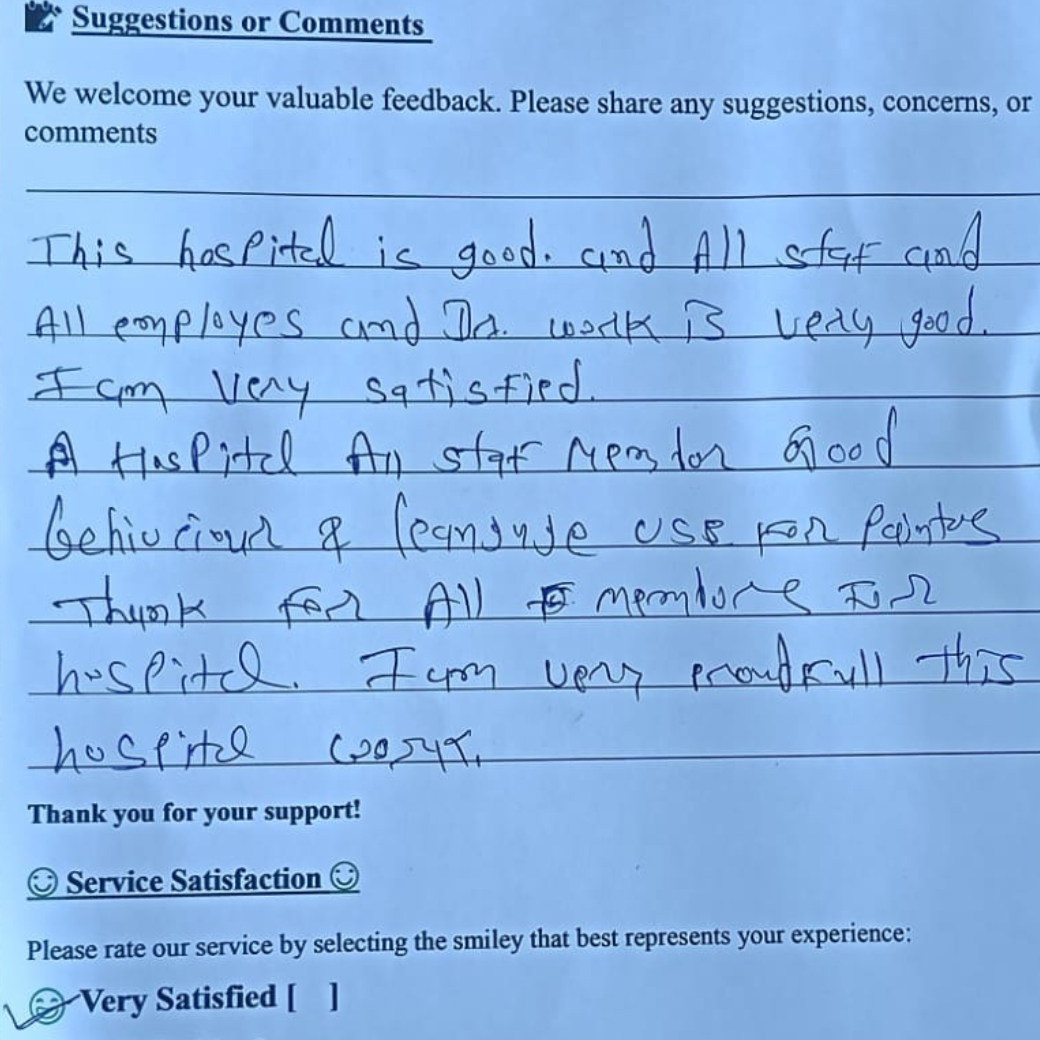 Suggestions or Comments
We welcome your valuable feedback. Please share any suggestions, concerns, or
comments
This hospital is good. and All staf and
All employes and Dr. work is very good.
I am very satisfied.
A Hospital All staf Member Good
behiviour & leanguge use for
Thank for All members For
hospital. I am very proudfull this
hospital
Thank you for your support!
Service Satisfaction
Please rate our service by selecting the smiley that best represents your experience:
Very Satisfied [ ]